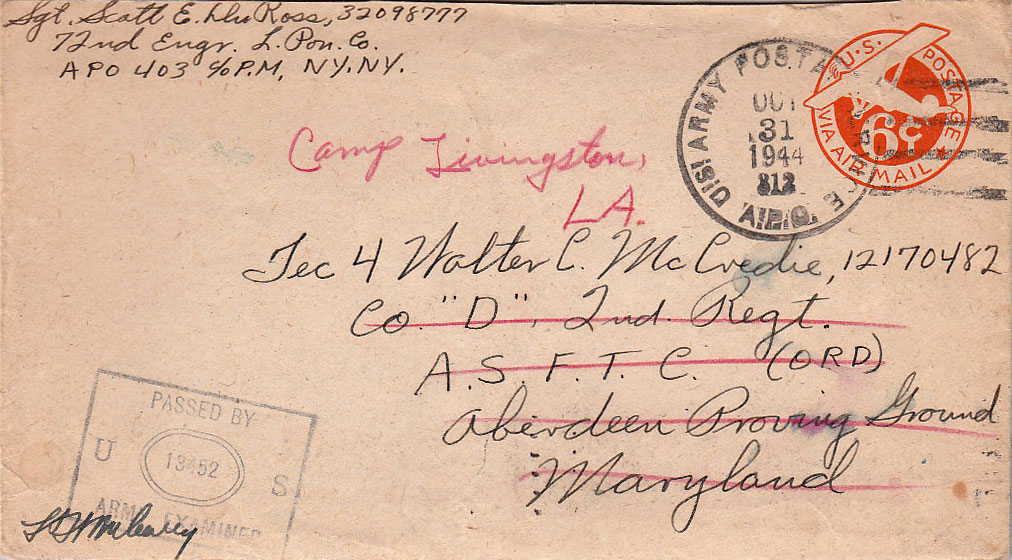 Sgt. Scott E. DuRoss, 32098777
72nd Engr. L. Pon. Co.
APO 403 c/o P.M, NY. NY.
U.S. POSTAGE
VIA AIR MAIL
6¢
ARMY POSTAL
OCT
31
1944
A.P.O.
Camp Livingston,
LA.
Tec 4 Walter C. McCredie, 12170482
Co. "D", 2nd. Regt.
A. S. F. T. C. (ORD)
Aberdeen Proving Ground
Maryland
PASSED BY
U 13452 S
ARMY EXAMINER